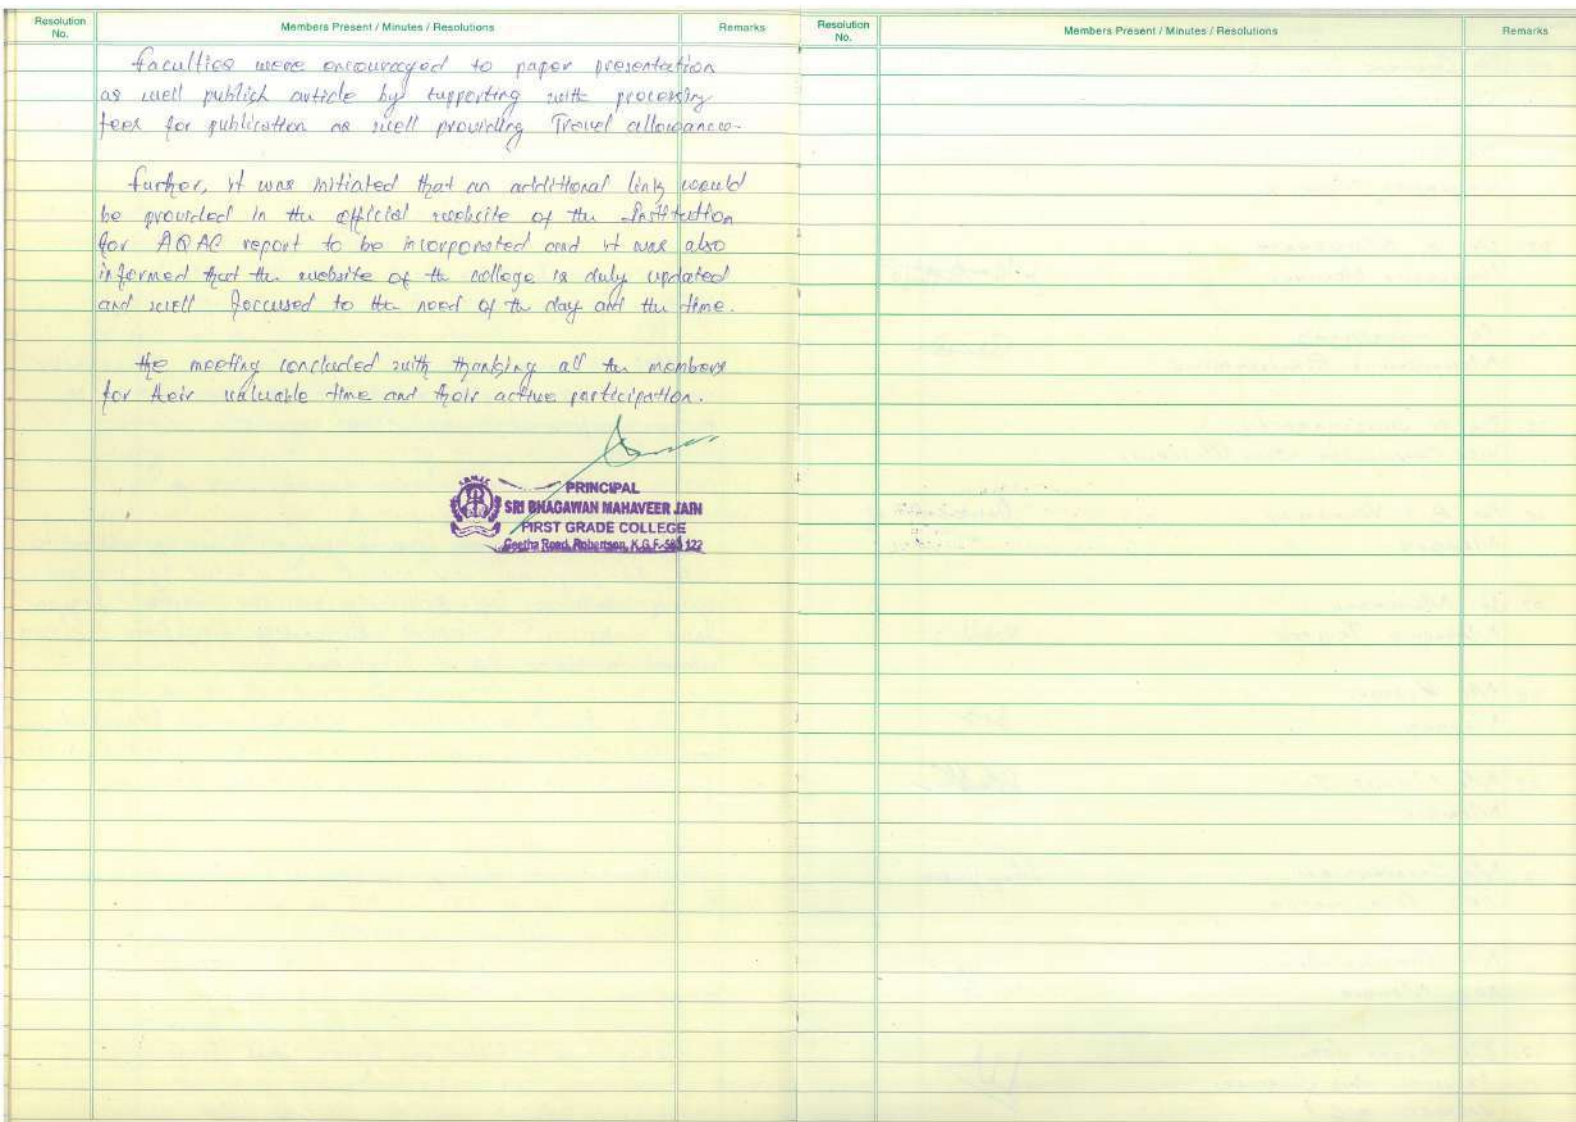 Resolution No.
Members Present / Minutes / Resolutions
Remarks
faculties were encouraged to paper presentation
as well publish article by supporting with processing
fees for publication as well providing Travel allowances.
further, it was initiated that an additional link would
be provided in the official website of the Institution
for AQAC report to be incorporated and it was also
informed that the website of the college is duly updated
and well foccused to the need of the day and the time.
the meeting concluded with thanking all the members
for their valuable time and their active participation.
PRINCIPAL
SRI BHAGAWAN MAHAVEER JAIN
FIRST GRADE COLLEGE
Geetha Road, Robertson, K.G.F-563 122
Resolution No.
Members Present / Minutes / Resolutions
Remarks